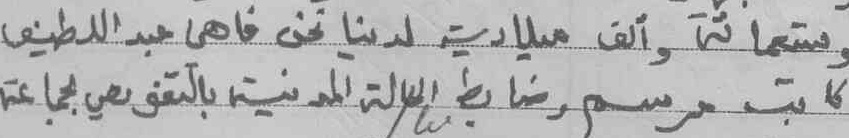 وتسعمائة وألف ميلادية لدينا نحن فاهي عبد اللطيف
كاتب مرسم وضابط الحالة المدنية بالتفويض لجماعة